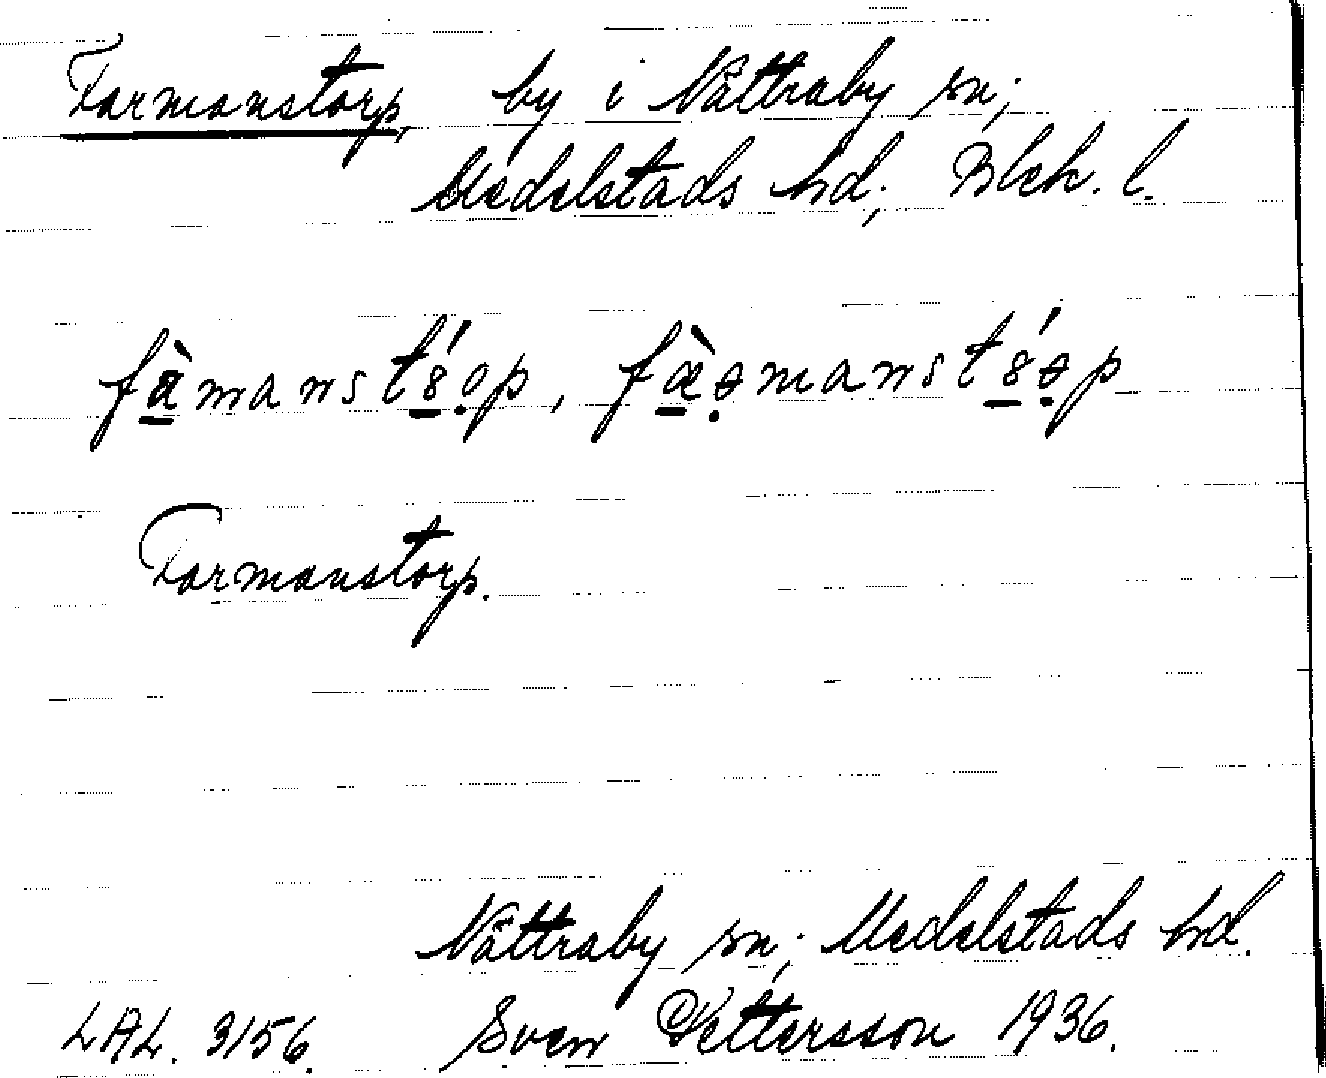 Farmanstorp, by i Nättraby sn;
Medelstads hd; Blek. l.
fà̱manstó̱ǫp, fæ̱̀ə̣manst8̱́ə̣p
Farmanstorp.
Nättraby sn; Medelstads hd.
LAL. 3156. Sven Pettersson 1936.